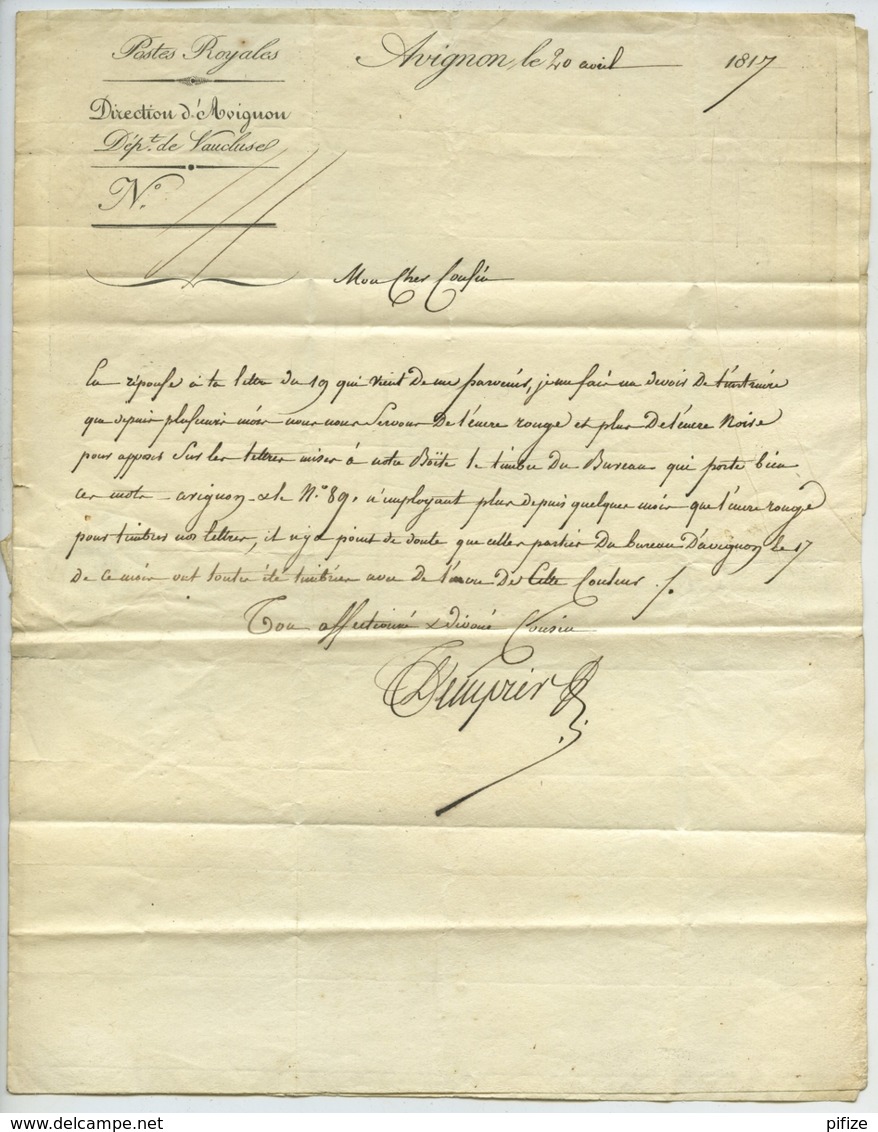 Postes Royales
Avignon, le 20 avril 1817
Direction d'Avignon
Dép.t de Vaucluse
N.o
Mon Cher Cousin
En réponse à ta lettre du 19 qui vient de me parvenir, je me fais un devoir de t'instruire
que depuis plusieurs mois nous nous servons de l'encre rouge et plus de l'encre Noire
pour apposer sur les lettres mises à notre Boëte le timbre du Bureau qui porte bien
ces mots avignon & le N.o 89. n'employant plus depuis quelques mois que l'encre rouge
pour timbrer nos lettres, il n'y a point de doute que celles parties du bureau D'avignon le 17
de ce mois ont toutes été timbrées avec de l'encre de Cette Couleur ./.
Ton affectionné & dévoué Cousin
delcampe.net
pifize